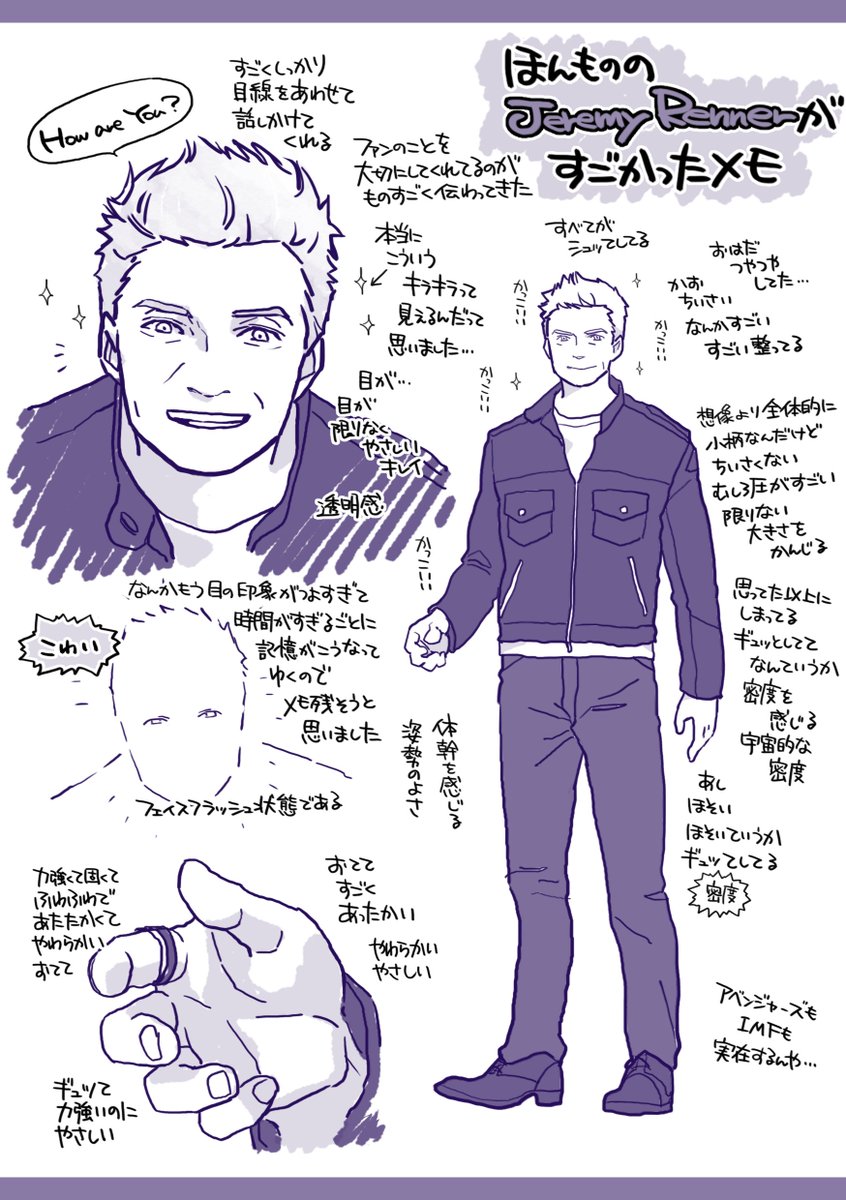 ほんものの
Jeremy Rennerが
すごかったメモ
How are You?
すごくしっかり
目線をあわせて
話しかけて
くれる
ファンのことを
大切にしてくれてるのが
ものすごく伝わってきた
本当に
こういう
キラキラって
見えるんだって
思いました…
目が…
目が
限りなく
やさしい
キレイ
透明感
すべてが
シュッてしてる
おはだ
つやつや
してた…
かお
ちいさい
なんかすごい
すごい整ってる
かっこ:::
かっこ:::
かっこ:::
かっこ:::
想像より全体的に
小柄なんだけど
ちいさくない
むしろ圧がすごい
限りない
大きさを
かんじる
思ってた以上に
しまってる
ギュッとしてて
なんていうか
密度を
感じる
宇宙的な
密度
体幹を感じる
姿勢のよさ
あし
ほそい
ほそいていうか
ギュッてしてる
密度
アベンジャーズも
IMFも
実在するんや…
なんかもう目の印象がつよすぎて
時間がすぎるごとに
記憶がこうなって
ゆくので
メモ残そうと
思いました
こわい
フェイスフラッシュ状態である
力強くて固くて
ふわふわで
あたたかくて
やわらかい
おてて
おてて
すごく
あったかい
やわらかい
やさしい
ギュッて
力強いのに
やさしい